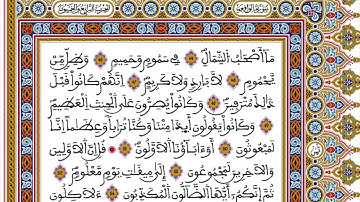 مَا أَصْحَابُ الشِّمَالِ فِي سَمُومٍ وَحَمِيمٍ وَظِلٍّ مِّن
يَحْمُومٍ لَّا بَارِدٍ وَلَا كَرِيمٍ إِنَّهُمْ كَانُوا قَبْلَ
ذَٰلِكَ مُتْرَفِينَ وَكَانُوا يُصِرُّونَ عَلَى الْحِنثِ الْعَظِيمِ
وَكَانُوا يَقُولُونَ أَئِذَا مِتْنَا وَكُنَّا تُرَابًا وَعِظَامًا أَءِنَّا
لَمَبْعُوثُونَ أَوَءَابَاؤُنَا الْأَوَّلُونَ قُلْ إِنَّ الْأَوَّلِينَ
وَالْآخِرِينَ لَمَجْمُوعُونَ إِلَىٰ مِيقَاتِ يَوْمٍ مَّعْلُومٍ
ثُمَّ إِنَّكُمْ أَيُّهَا الضَّالُّونَ الْمُكَذِّبُونَ لَآكِلُونَ